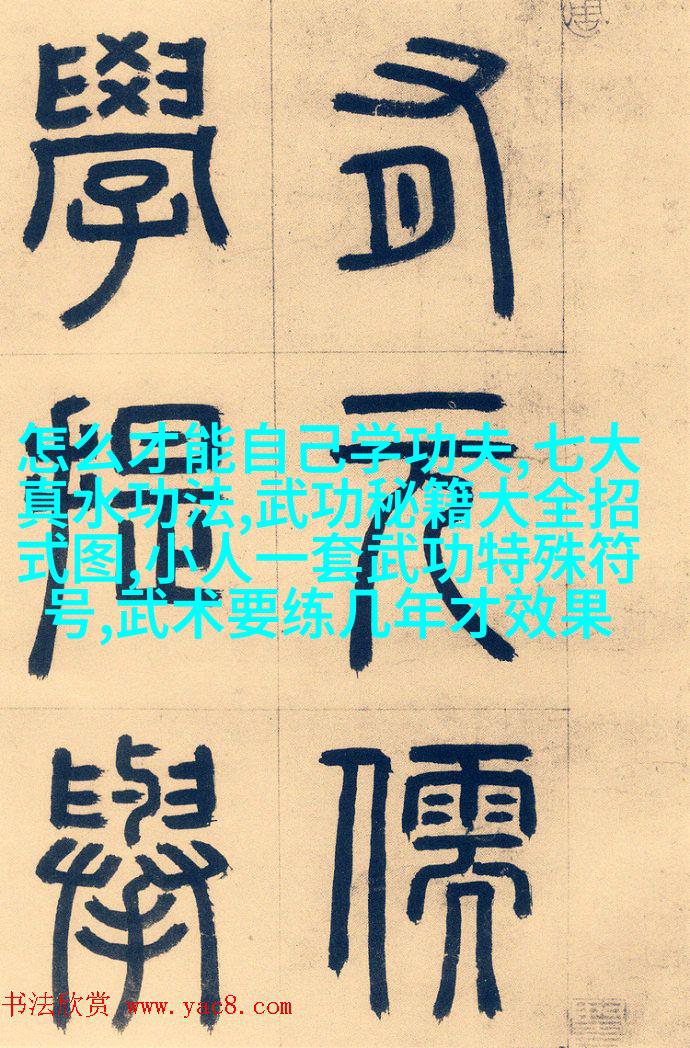 有元儒
學提舉
怎么才能自己学功夫,七大
真水功法,武功秘籍大全招
式图,小人一套武功特殊符
号,武术要练几年才效果
书法欣赏 www.yac8.com